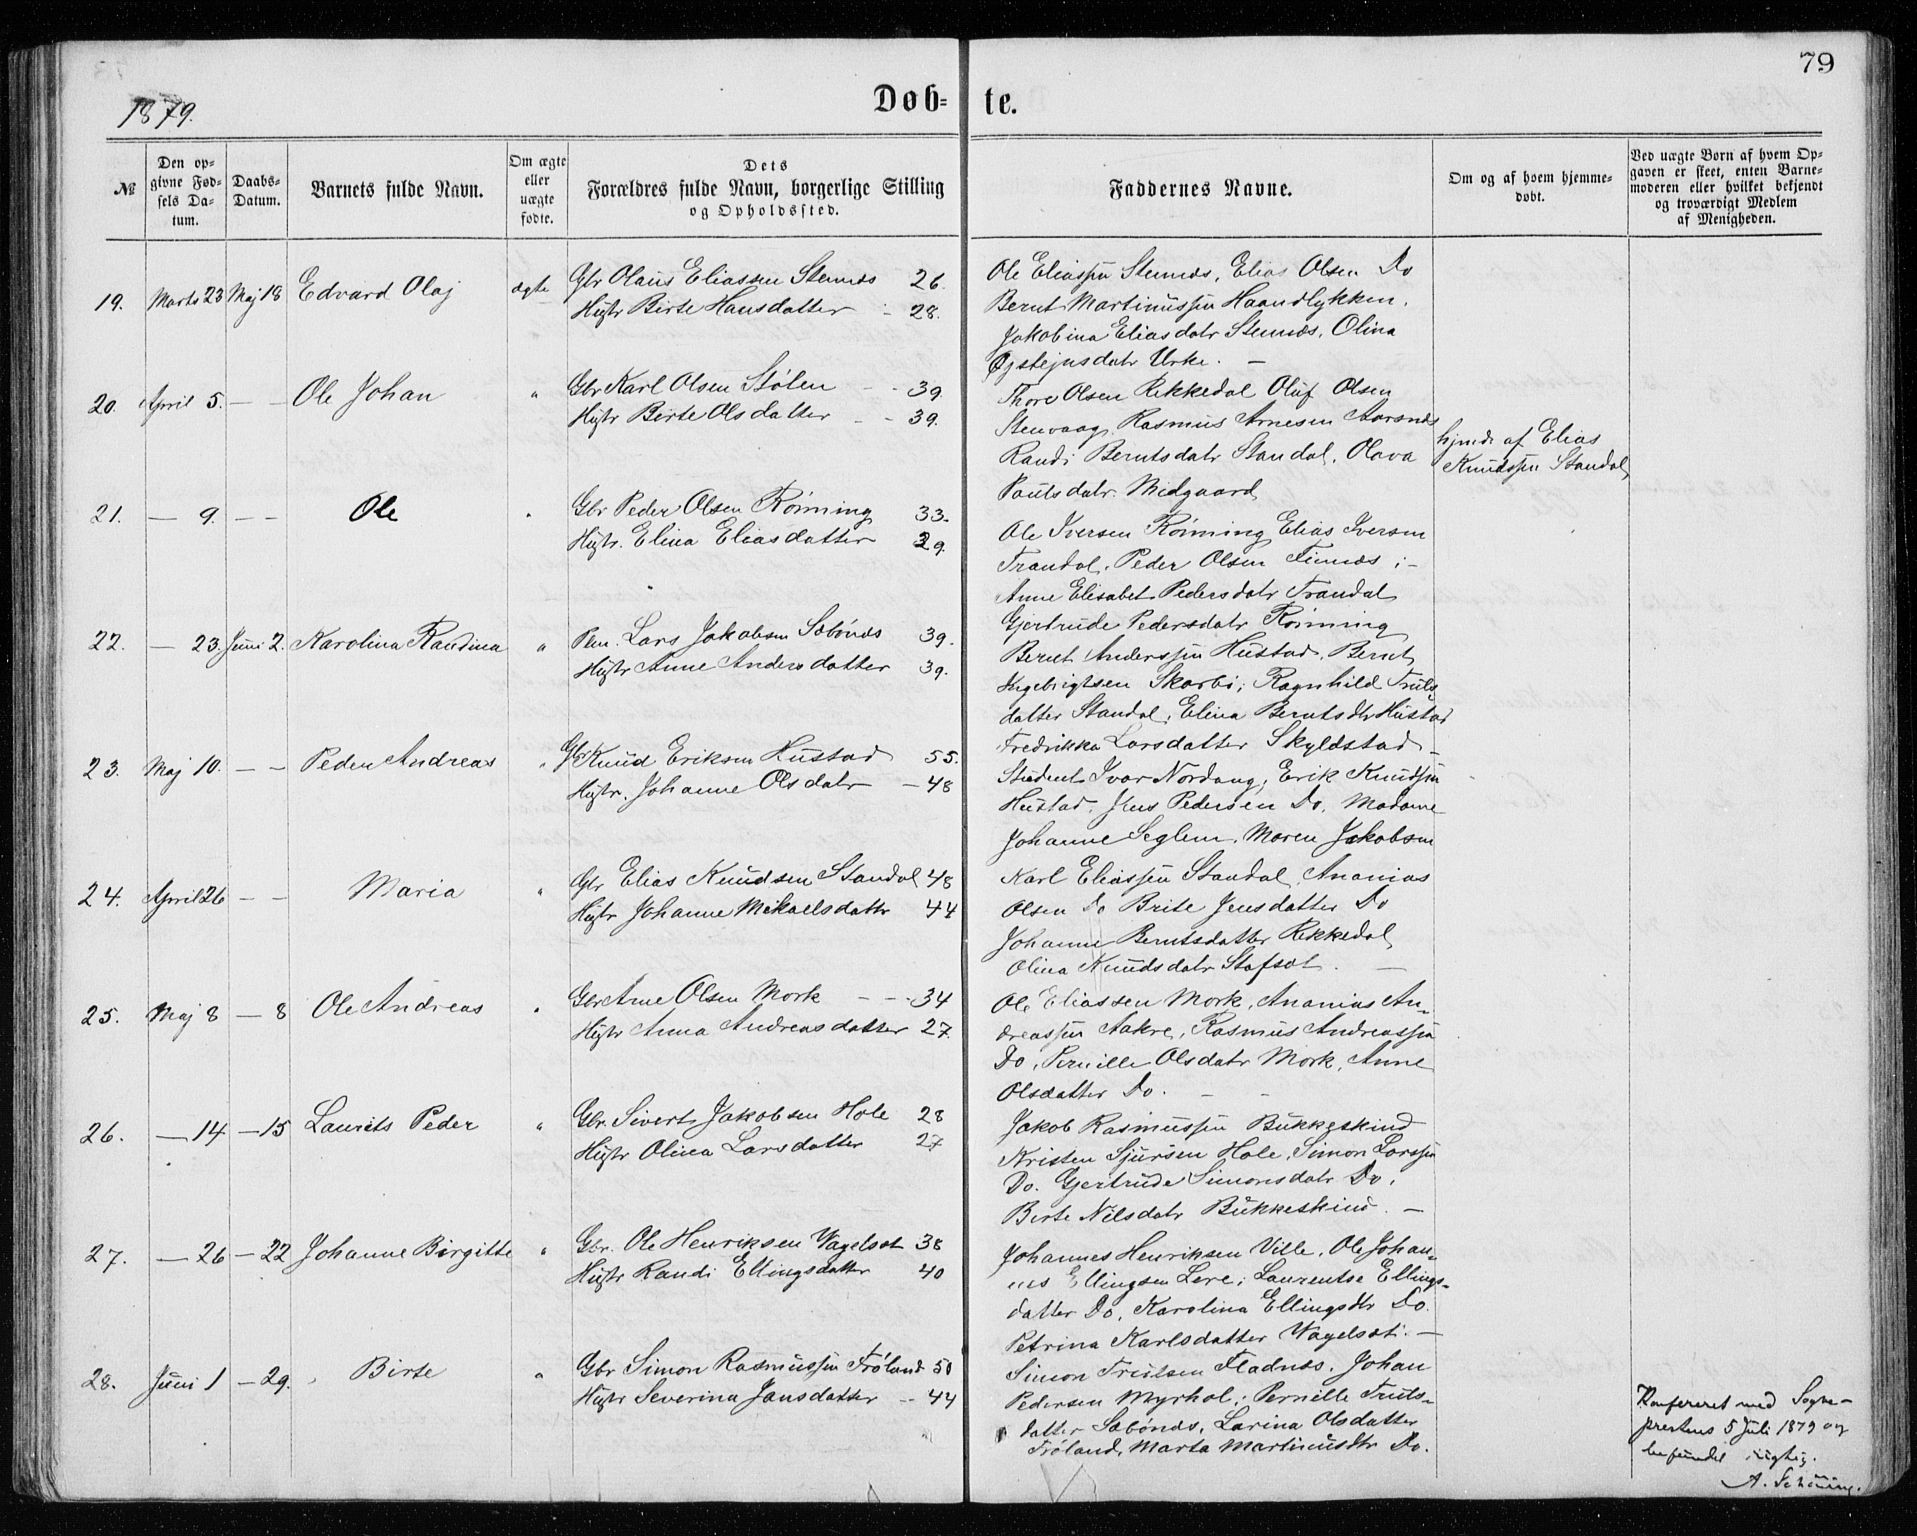 79
1879.
Døb-te.
№
Den opgivne Fødsels Datum.
Daabs-Datum.
Barnets fulde Navn.
Om ægte eller uægte fødte.
Dets Forældres fulde Navn, borgerlige Stilling og Opholdssted.
Faddernes Navne.
Om og af hvem hjemmedøbt.
Ved uægte Børn af hvem Opgaven er skeet, enten Barnemoderen eller hvilket bekjendt og troværdigt Medlem af Menigheden.
19. Marts 23 Maj 18 Edvard Olaj ægte Gbr Olaus Eliassen Stennæs 26.
Hustr Birte Hansdatter - 28.
Ole Eliassen Stennæs, Elias Olsen Do
Bernt Martinussen Haandlykken.
Jakobina Eliasdatr Stennæs, Olina
Øystejnsdatr Urke. —
20. April 5. — — Ole Johan " Gbr Karl Olsen Stølen - - 39
Hustr Birte Olsdatter - - 39.
Thore Olsen Rekkedal Oluf Olsen
Stenvaag, Rasmus Arnesen Aarsnes
Randi Berntsdatr Standal, Olava
Poulsdatr. Midgaard
hjmdt af Elias
Knudssen Standal
21. — 9. — — Ole " Gbr Peder Olsen Rønning 33.
Hustr. Elina Eliasdatter 29.
Ole Iversen Rønning Elias Iversen
Trandal, Peder Olsen Finnes ; -
Anne Elisabet Pedersdatr Trandal
Gjertrude Pedersdatr Rønning
22. — 23. Juni 2. Karolina Randina " Pem. Lars Jakobsen Sæbønæs 39.
Hustr Anne Andersdatter 39.
Bernt Anderssen Hustad, Bernt
Ingebrigtsen Skarbø; Ragnhild Truls-
datter Standal, Elina Berntsdtr Hustad
Fredrikka Larsdatter Skyldstad -
23. Maj 10. — — Peder Andreas " Gbr Knud Eriksen Hustad 55.
Hustr. Johanne Olsdatr — 48
Student Ivar Nordang, Erik Knudssen
Hustad, Jens Pedersen Do, Madame
Johanne Seglem, Maren Jakobsen
24. April 26 — — Maria " Gbr Elias Knudsen Standal 48
Hustr Johanne Mikaelsdattr 44
Karl Eliassen Standal, Ananias
Olsen Do Brite Jensdatter Do
Johanne Berntsdatter Rekkedal
Olina Knudsdatr Stafsæt. —
25. Maj 8 — 8 Ole Andreas " Gbr Arne Olsen Mork - - 34
Hustr Anna Andreasdatter 27.
Ole Eliassen Mork, Ananias An-
dreassen Aakre, Rasmus Andreassen
Do, Pernille Olsdatr Mork, Anne
Olsdatter Do. - -
26. — 14 — 15 Laurits Peder " Gbr. Sivert Jakobsen Hole 28
Hustr Olina Larsdatter 27
Jakob Rasmussen Bukkeskind
Kristen Sjursen Hole, Simon Larssen
Do. Gjertrude Simonsdatr Do,
Berte Nilsdatr Bukkeskind. —
27. — 26 — 22 Johanne Birgitte " Gbr. Ole Henriksen Vagelsæt 38
Hustr Randi Ellingsdatter 40
Johannes Henriksen Ville, Ole Johan-
nes Ellingsen Lere; Laurentse Ellings-
datter Do, Karolina Ellingsdtr Do.
Petrina Karlsdatter Vagelsæt. —
28. Juni 1 — 29. Birte " Gbr Simon Rasmussen Frøland 50
Hustr Severina Jansdatter — 44
Simon Trulsen Fladnæs, Johan
Pedersen Myrhol; Pernille Truls-
datter Sæbønæs, Larina Olsdatter
Frøland, Marta Martinusdtr Do.
Konfereret med Sogne-
prestens 5 Juli 1879 og
befundet rigtig.
A. Schöning.